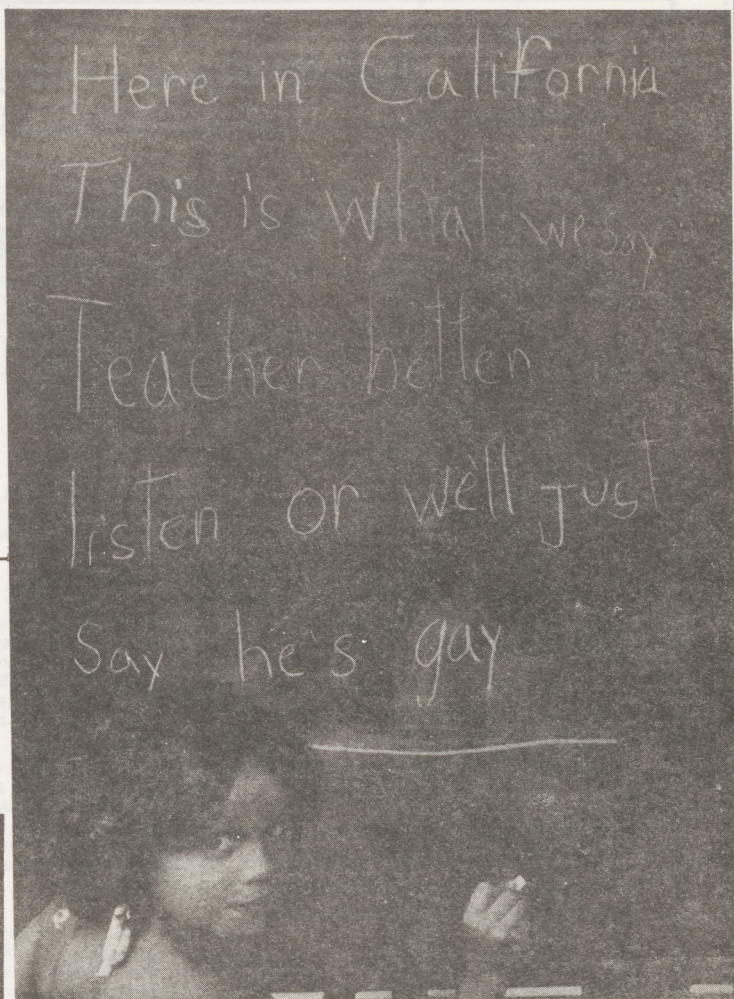 Here in California
This is what we say
Teacher better
listen or we'll just
Say he's gay